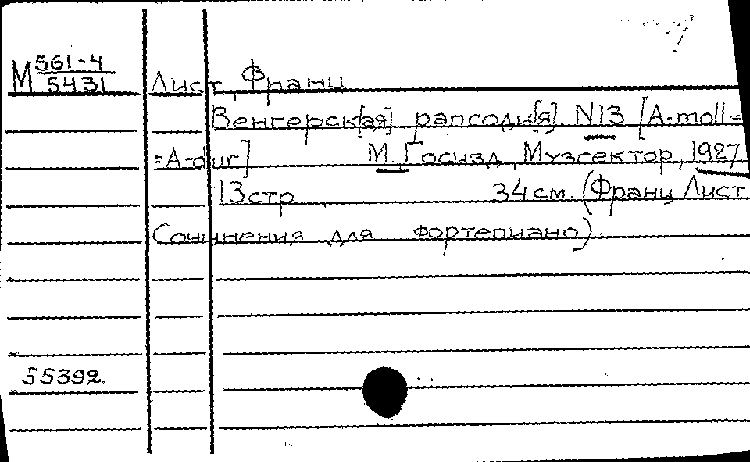 М 561-4
5431
Лист, Франц
Венгерск[ая] рапсоди[я] N13 [A-moll-
=A-dur] М. Госизд. Музсектор, 1927
13 стр. 34 см. (Франц Лист
Сочинения для фортепиано)
55392.